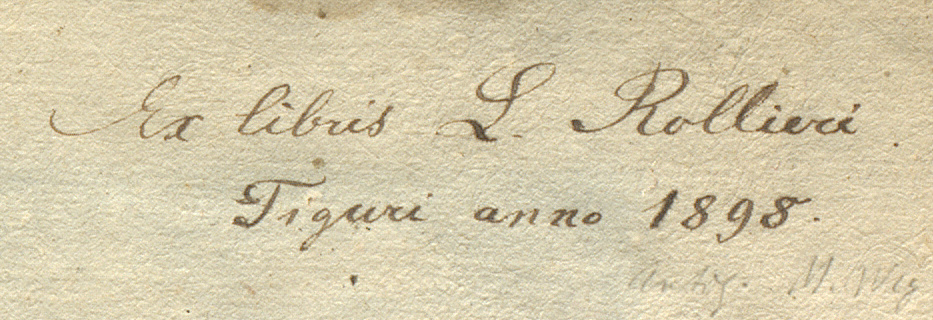 Ex libris L. Rollieri
Tiguri anno 1898.
Antiq.